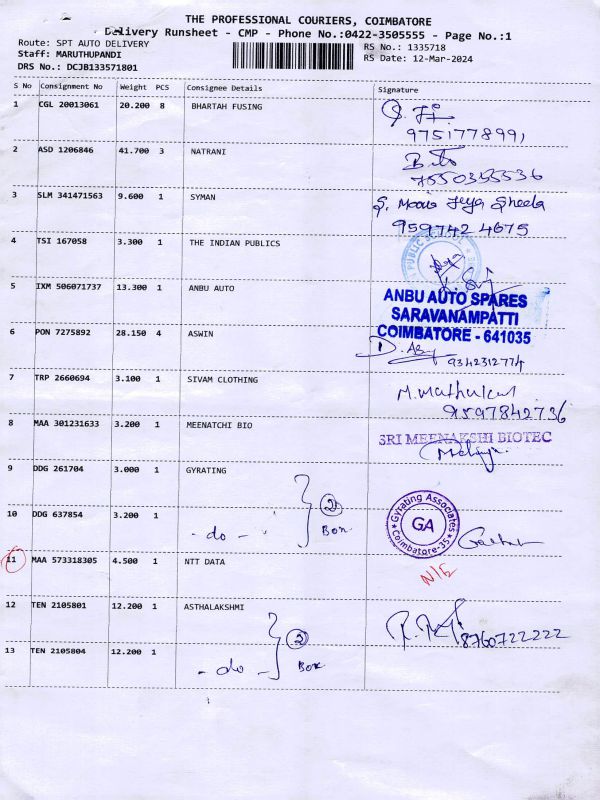 THE PROFESSIONAL COURIERS, COIMBATORE
Delivery Runsheet - CMP - Phone No.:0422-3505555 - Page No.:1
Route: SPT AUTO DELIVERY
Staff: MARUTHUPANDI
DRS No.: DCJB133571801
RS No.: 1335718
RS Date: 12-Mar-2024
S No Consignment No Weight PCS Consignee Details Signature
1 CGL 20013061 20.200 8 BHARTAH FUSING
9751778991
2 ASD 1206846 41.700 3 NATRANI
7550355536
3 SLM 341471563 9.600 1 SYMAN
S. Maria Jeya Sheela
9597424675
4 TSI 167058 3.300 1 THE INDIAN PUBLICS
PUBLIC
5 IXM 506071737 13.300 1 ANBU AUTO
ANBU AUTO SPARES
SARAVANAMPATTI
COIMBATORE - 641035
6 PON 7275892 28.150 4 ASWIN
9342312774
7 TRP 2660694 3.100 1 SIVAM CLOTHING
9597842736
8 MAA 301231633 3.200 1 MEENATCHI BIO
SRI MEENAKSHI BIOTEC
9 DDG 261704 3.000 1 GYRATING
2
Box
Gyrating Associates
GA
Coimbatore-35
10 DDG 637854 3.200 1 - do -
11 MAA 573318305 4.500 1 NTT DATA
N/S
12 TEN 2105801 12.200 1 ASTHALAKSHMI
8760722222
2
Box
13 TEN 2105804 12.200 1 - do -